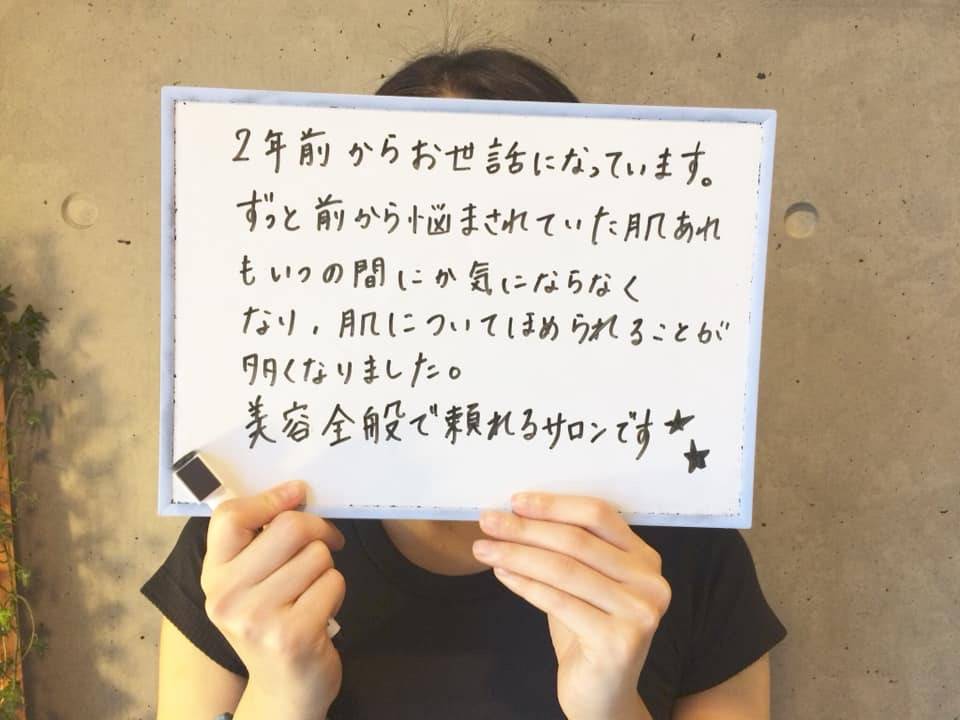 2年前からお世話になっています。
ずっと前から悩まされていた肌あれ
もいつの間にか気にならなく
なり、肌についてほめられることが
多くなりました。
美容全般で頼れるサロンです★★